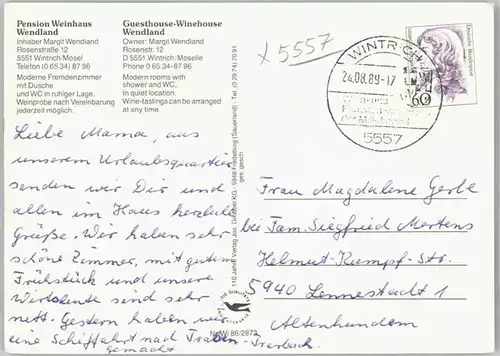 Pension Weinhaus
Wendland
Inhaber Margit Wendland
Rosenstraße 12
5551 Wintrich/Mosel
Telefon (0 65 34) 87 96
Moderne Fremdenzimmer
mit Dusche
und WC in ruhiger Lage.
Weinprobe nach Vereinbarung
jederzeit möglich.
Guesthouse-Winehouse
Wendland
Owner: Margit Wendland
Rosenstr. 12
D 5551 Wintrich/Moselle
Phone 0 65 34-87 96
Modern rooms with
shower and WC,
in quiet location.
Wine-tastings can be arranged
at any time.
x 5557
WINTRICH
24.08.89-17
5557
Deutsche Bundespost
60
Liebe Mama, aus
unserem Urlaubsquartier
senden wir Dir und
allen im Haus herzliche
Grüße. Wir haben sehr
schöne Zimmer, mit gutem
Frühstück und unsere
Wirtsleute sind sehr
nett. Gestern haben wir
eine Schiffahrt nach Traben-Trarbach
gemacht
110 Jahre Verlag Jos. Grobbel KG - 5948 Fredeburg (Sauerland) - Tel. (0 29 74) 70 91
ges. gesch.
DIE QUALITÄTS
Frau Magdalene Gerbe
bei Fam. Siegfried Martens
Helmut-Kumpf-Str.
5940 Lennestadt 1
Altenhundem